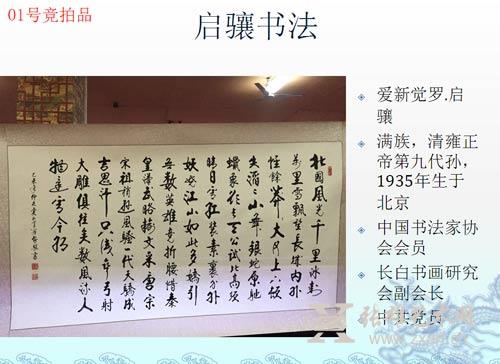 01号竞拍品
启骧书法
北國風光千里冰封
萬里雪飄望長城內外
惟餘莽莽大河上下頓
失滔滔山舞銀蛇原馳
蠟象欲與天公試比高須
晴日看紅裝素裹分外
妖嬈江山如此多嬌引
無數英雄競折腰惜秦
皇漢武略輸文采唐宗
宋祖稍遜風騷一代天驕成
吉思汗只識彎弓射
大雕俱往矣數風流人
物還看今朝
爱新觉罗.启
骧
满族，清雍正
帝第九代孙，
1935年生于
北京
中国书法家协
会会员
长白书画研究
会副会长
中共党员